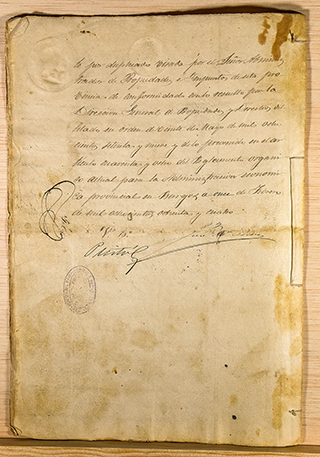 to por duplicado visado por el Señor Adminis
trador de Propiedades é Impuestos de esta pro
vincia de conformidad con lo resuelto por la
Dirección General de Propiedades y Derechos del
Estado en orden de veinte de Mayo de mil ocho
cientos setenta y nueve y de lo prevenido en el ar
tículo cuarenta y ocho del Reglamento orgáni
co actual para la Administración económi
ca provincial en Burgos á once de
de mil ochocientos ochenta y cuatro
Vº Bº